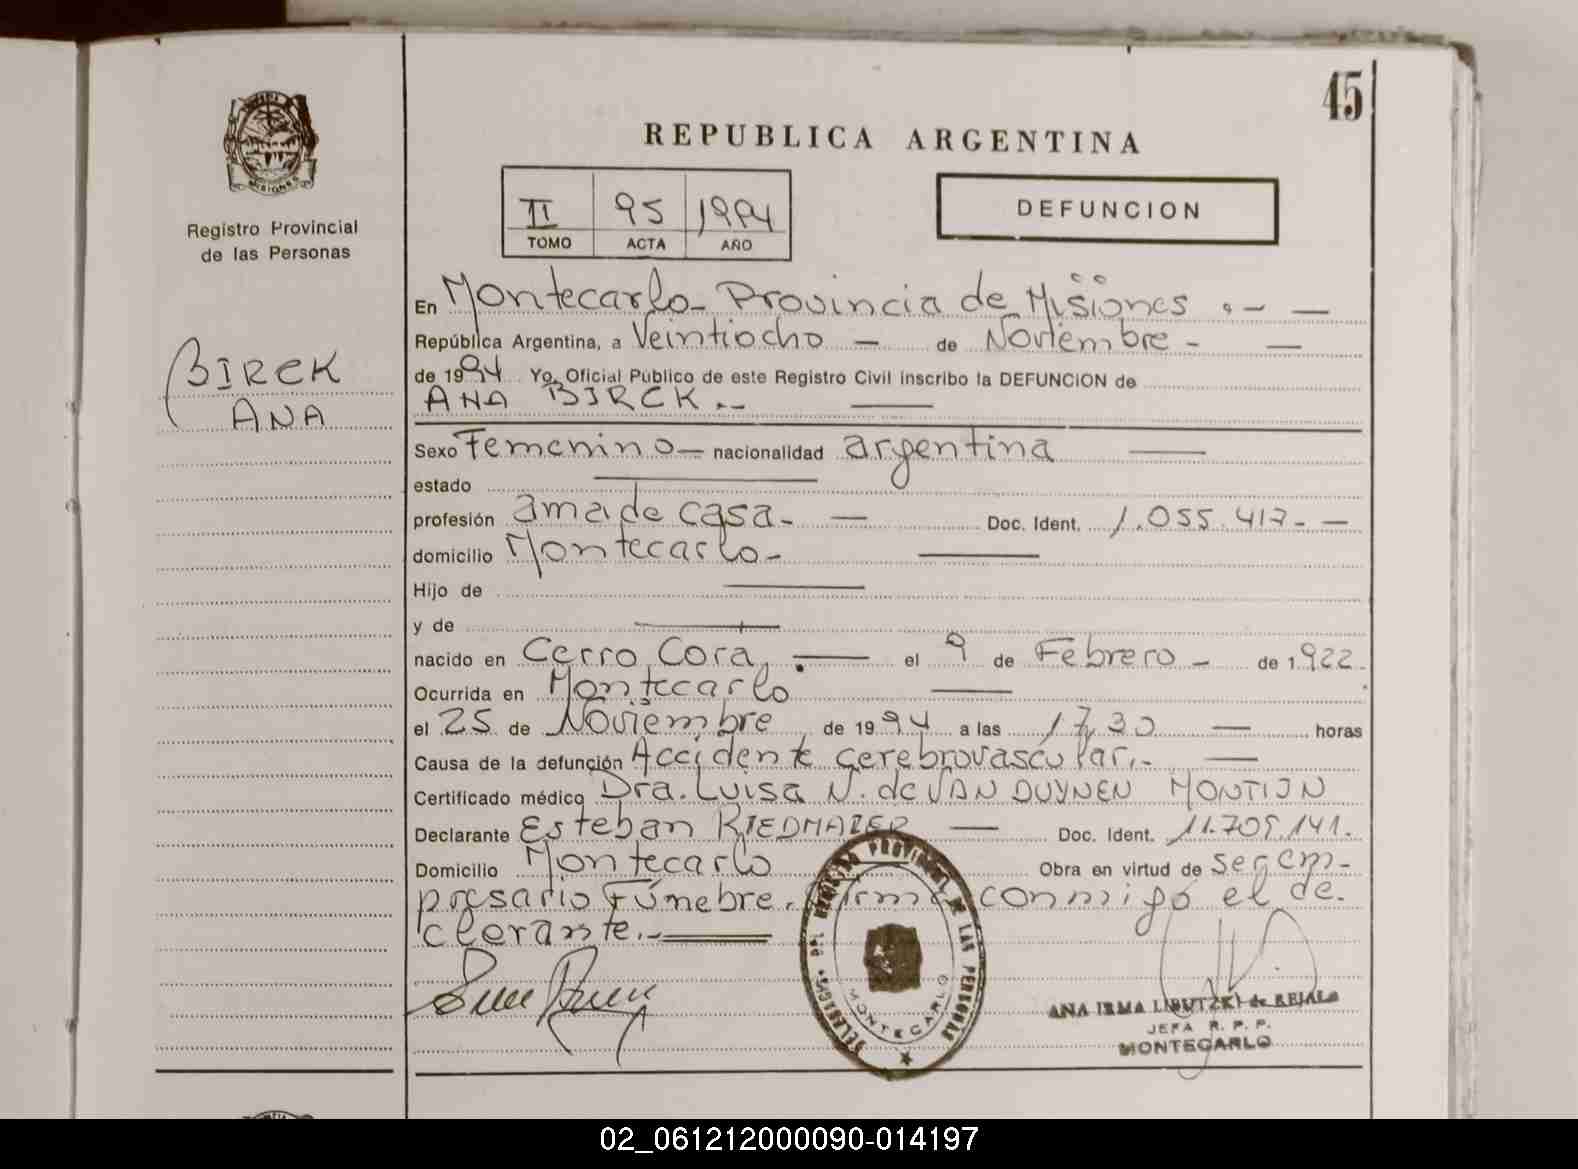 45
REPUBLICA ARGENTINA
MISIONES
Registro Provincial
de las Personas
II 95 1994
TOMO ACTA AÑO
DEFUNCION
BIRCK
ANA
En Montecarlo- Provincia de Misiones .- —
República Argentina, a Veintiocho — de Noviembre - —
de 1994 Yo, Oficial Público de este Registro Civil inscribo la DEFUNCION de
ANA BIRCK.- —
Sexo Femenino — nacionalidad argentina —
estado —
profesión ama de casa- — Doc. Ident. 1.055.417- —
domicilio Montecarlo- —
Hijo de —
y de —
nacido en Cerro Cora, . — el 9 de Febrero - de 1.922
Ocurrida en Montecarlo —
el 25 de Noviembre de 1994 a las 17,30 — horas
Causa de la defunción Accidente cerebrovascular.- —
Certificado médico Dra. Luisa N. de VAN DUYNEN MONTIJN
Declarante Esteban RIEDMAIER — Doc. Ident. 11.705.141.
Domicilio Montecarlo Obra en virtud de ser em-
presario Fúnebre. Firma conmigo el de-
clarante.- —
DELEGACION DEL REGISTRO PROVINCIAL DE LAS PERSONAS
MONTECARLO
ANA IRMA LIBUTZKI de REJALA
JEFA R. P. P.
MONTECARLO
02_061212000090-014197